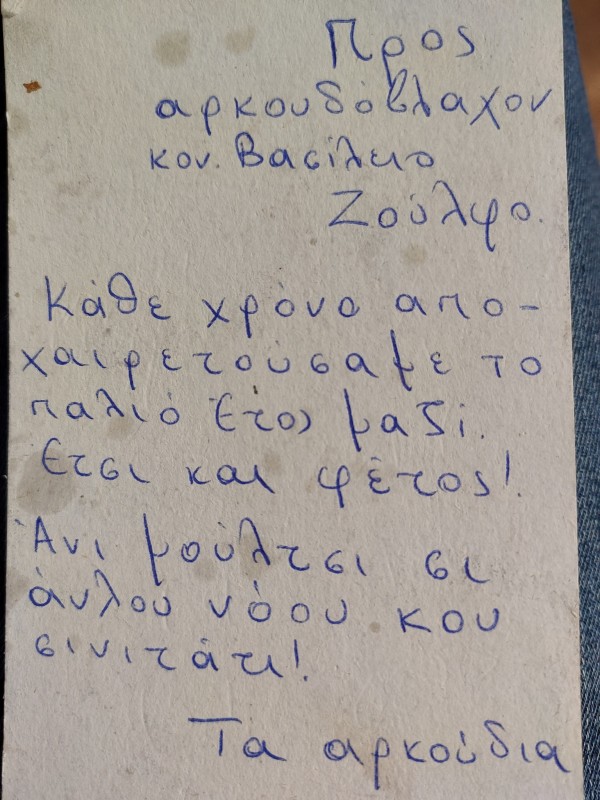 Προς
αρκουδόβλαχον
κον. Βασίλειο
Ζούλφο.
Κάθε χρόνο απο-
χαιρετούσαμε το
παλιό έτος μαζί.
Έτσι και φέτος!
Άνι μούλτσι σι
άνλου νόου κου
σινιτάτι!
Τα αρκούδια